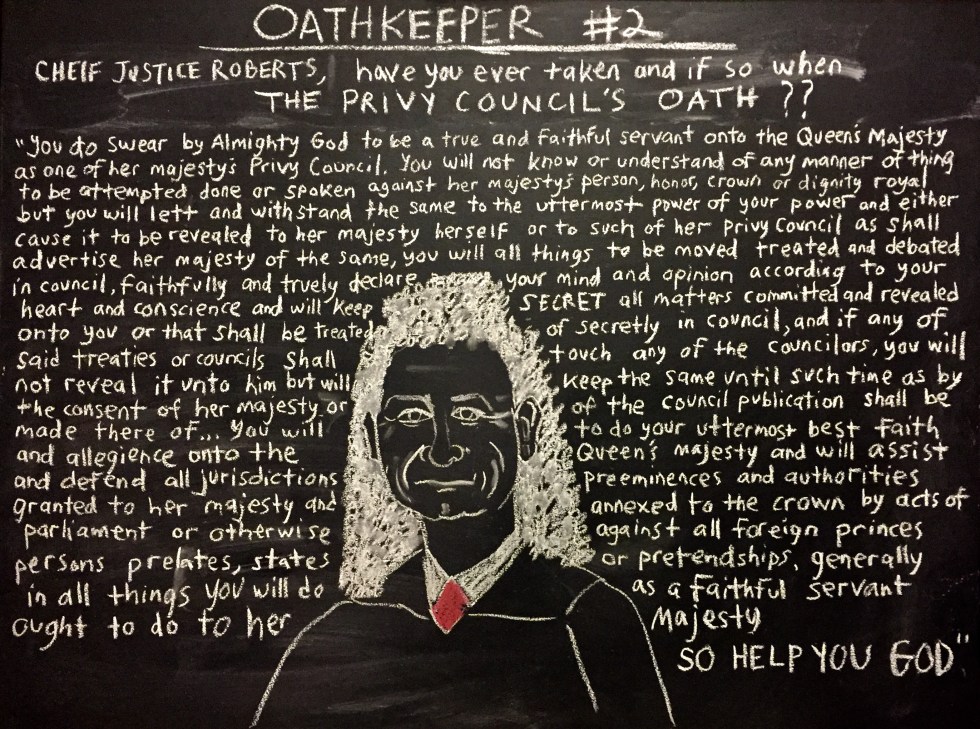 OATHKEEPER #2
CHEIF JUSTICE ROBERTS, have you ever taken and if so when
THE PRIVY COUNCIL'S OATH ??
"You do swear by Almighty God to be a true and faithful servant onto the Queen's Majesty
as one of her majesty's Privy Council. You will not know or understand of any manner of thing
to be attempted done or spoken against her majesty's person, honor, crown or dignity royal
but you will lett and withstand the same to the uttermost power of your power and either
cause it to be revealed to her majesty herself or to such of her Privy Council as shall
advertise her majesty of the same, you will all things to be moved treated and debated
in council, faithfully and truely declare your mind and opinion according to your
heart and conscience and will keep SECRET all matters committed and revealed
onto you or that shall be treated of secretly in council, and if any of
said treaties or councils shall touch any of the councilors, you will
not reveal it unto him but will keep the same until such time as by
the consent of her majesty or of the council publication shall be
made there of... You will to do your uttermost best faith
and allegience onto the Queen's majesty and will assist
and defend all jurisdictions preeminences and authorities
granted to her majesty and annexed to the crown by acts of
parliament or otherwise against all foreign princes
persons prelates, states or pretendships, generally
in all things you will do as a faithful servant
ought to do to her Majesty
SO HELP YOU GOD"